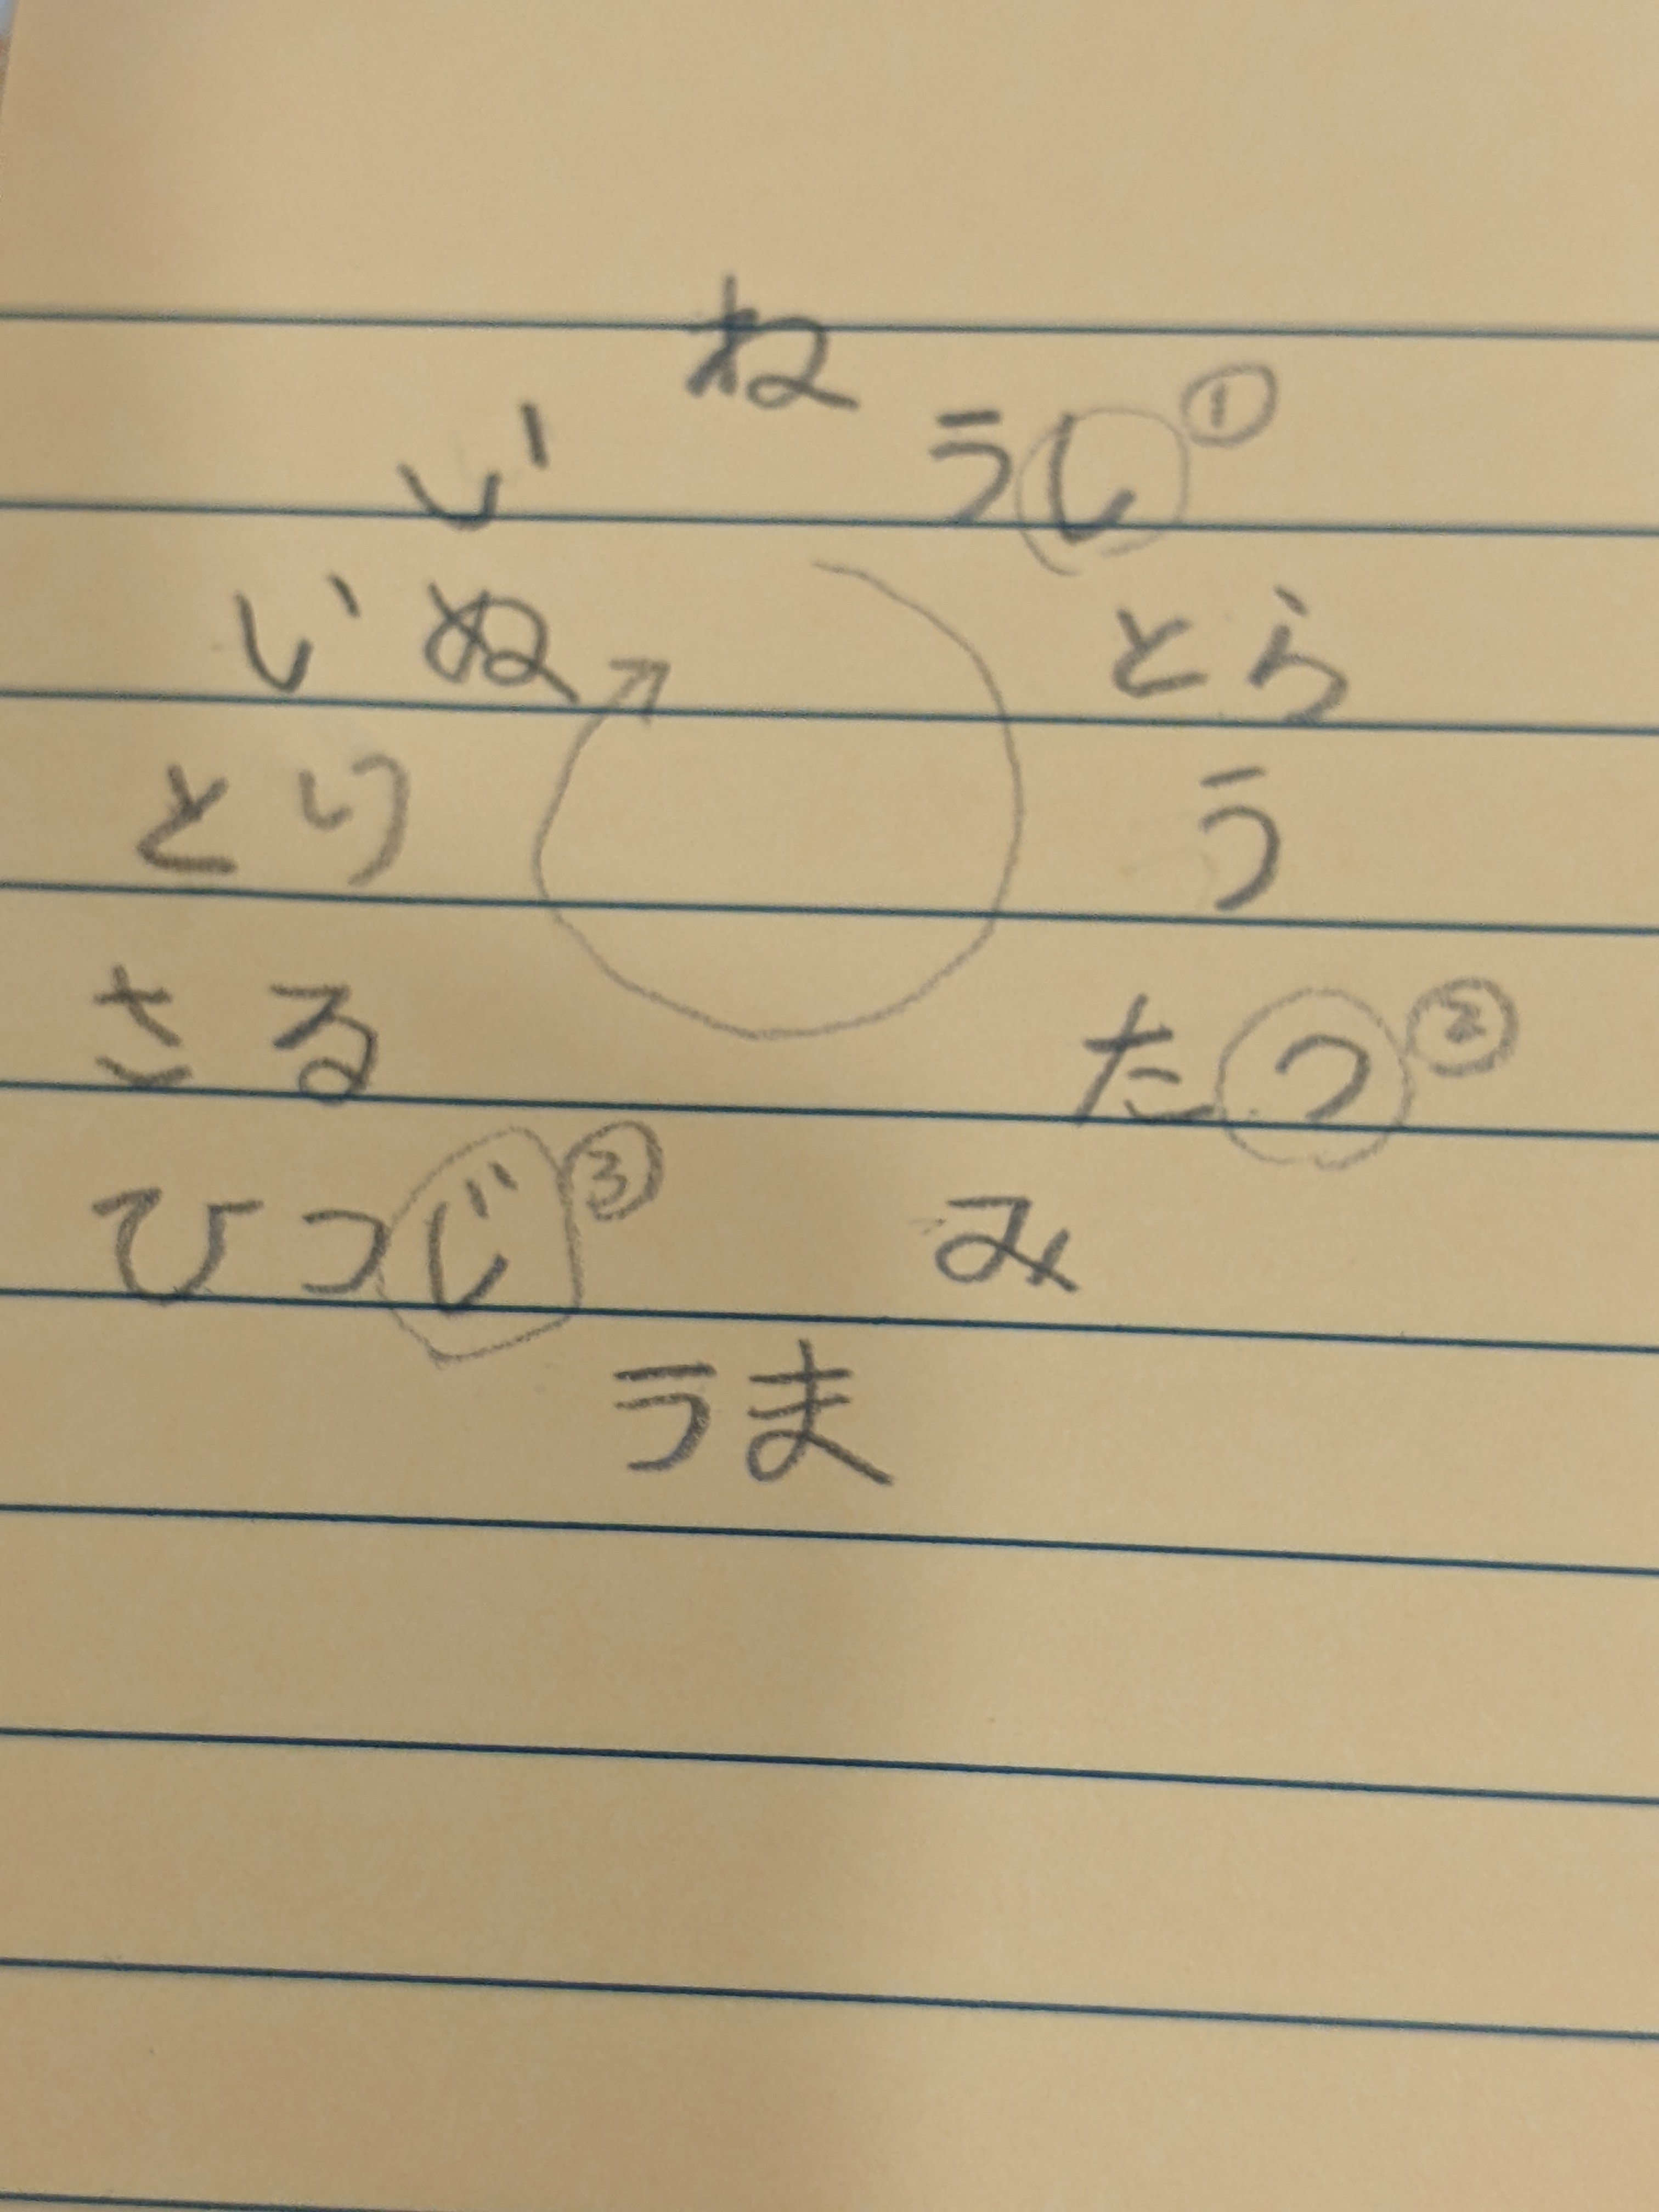 ね
い うし ①
いぬ とら
とり う
さる たつ ②
ひつじ ③ み
うま